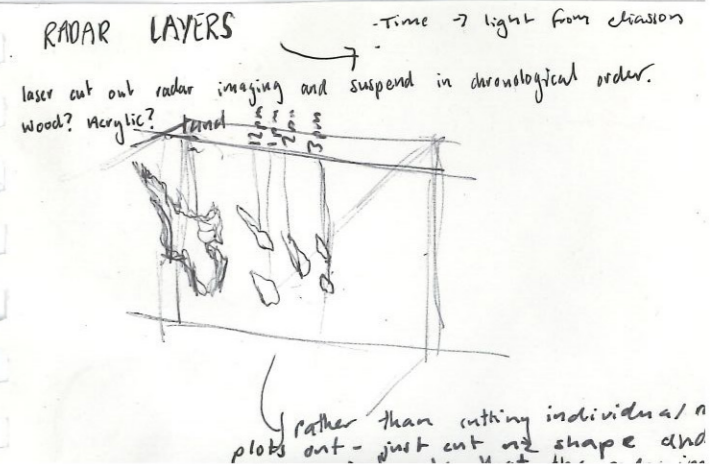 RADAR LAYERS
-Time → light from eliasson
-
laser cut out radar imaging and suspend in chronological order.
Wood? Acrylic?
land
12pm
1pm
2pm
3pm
rather than cutting individual
plots out - just cut nz shape and